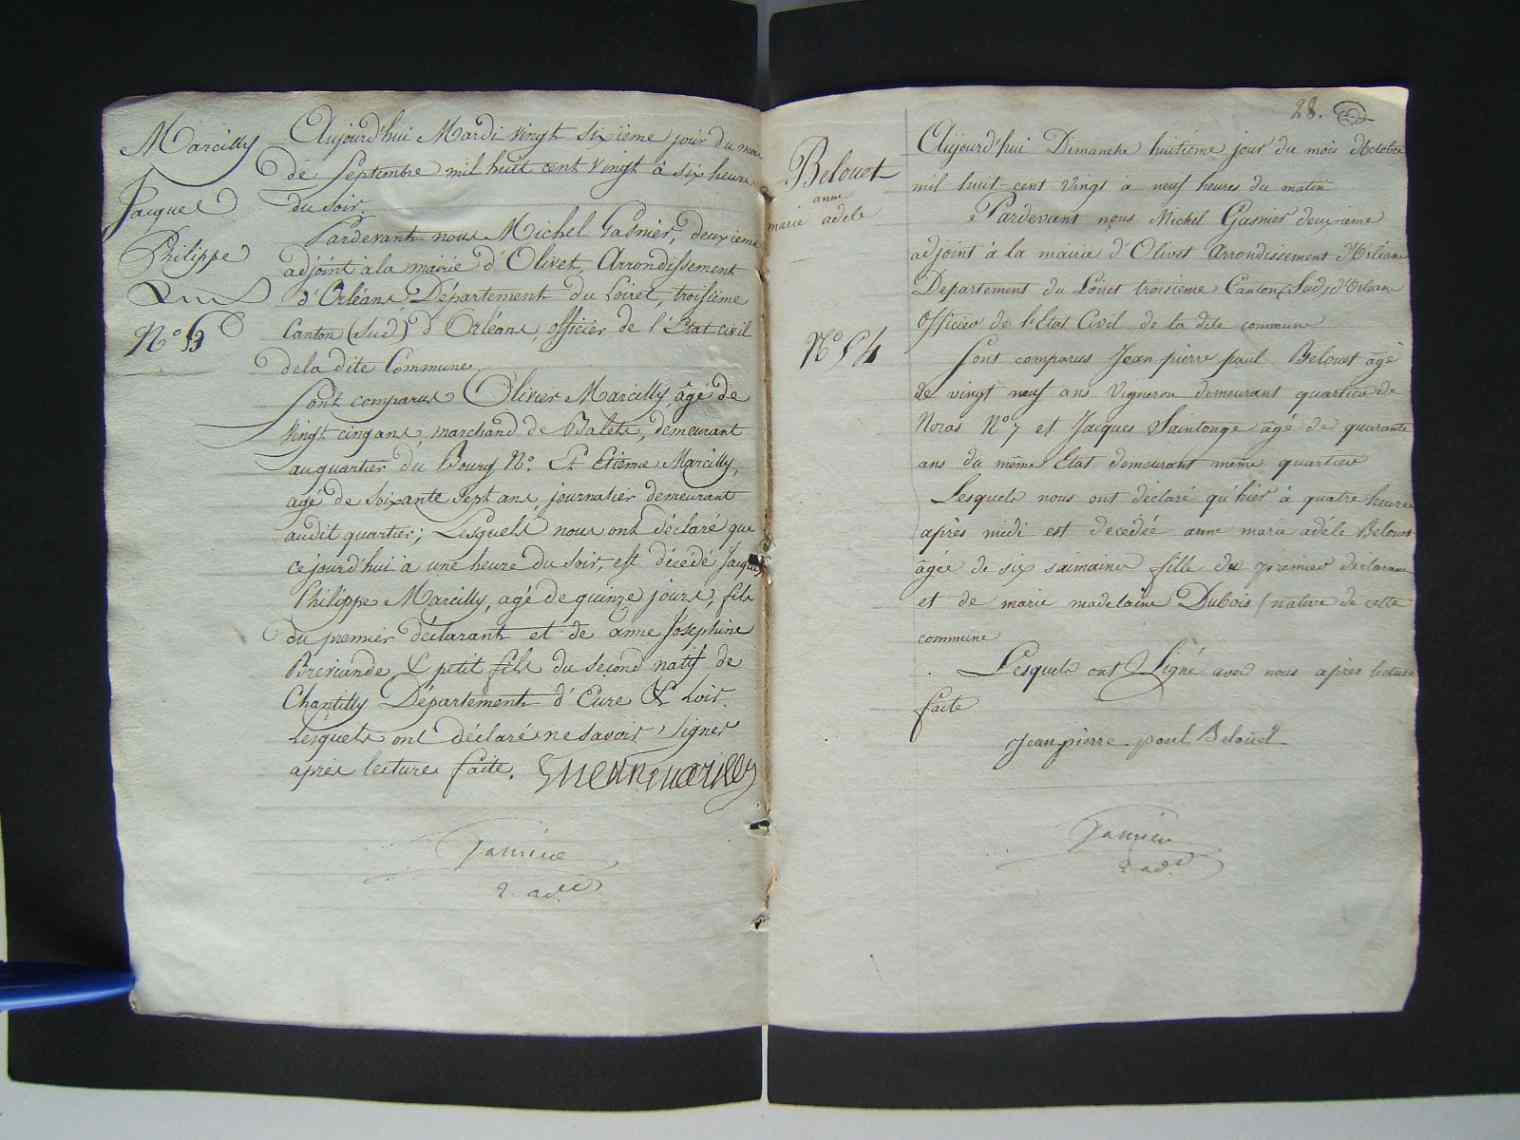 Marcilly
Jacques
Philippe
N° 53
Aujourd'hui Mardi vingt sixieme jour du mois
de Septembre mil huit cent vingt à six heures
du soir
Pardevant nous Michel Gasnier, deuxieme
adjoint à la mairie d'Olivet, Arrondissement
d'Orléans Département du Loiret, troisième
Canton (Sud) d'Orléans, officier de l'Etat civil
de la dite Commune
Sont comparus Olivier Marcilly âgé de
vingt cinq ans, marchand de Balets, demeurant
au quartier du Bourg N°. Et Etienne Marcilly,
agé de soixante sept ans journalier demeurant
audit quartier; Lesquels nous ont déclaré que
cejourd'hui à une heure du soir, est décédé Jacques
Philippe Marcilly, agé de quinze jours, fils
du premier déclarant et de anne Josephine
& petit fils du second natif de
Chantilly Département d'Eure & Loir.
Lesquels ont déclaré ne savoir signer
après lecture faite.
2. ad.
28.
Belouet
anne
marie adele
N° 54
Aujourd'hui Dimanche huitieme jour du mois d'Octobre
mil huit cent vingt a neuf heures du matin
Pardevant nous Michel Gasnier deuxieme
adjoint à la mairie d'Olivet Arrondissement d'Orléans
Departement du Loiret troisieme Canton (Sud) d'Orléans
Officier de l'Etat Civil de la dite commune
Sont comparus Jean pierre paul Belouet âgé
de vingt neuf ans vigneron demeurant quartier de
Noras N° 7 et Jacques Saintonge âgé de quarante
ans du même Etat demeurant même quartier
Lesquels nous ont déclaré qu'hier à quatre heures
après midi est decédée anne marie adéle Belouet
âgée de six saimaines fille du premier déclarant
et de marie madelaine Dubois / native de cette
commune
Lesquels ont Signé avec nous après lecture
faite
Jean pierre paul Belouet
2. ad.